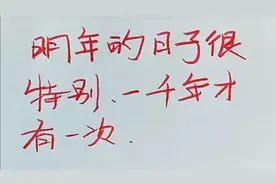 明年的日子很
特别、一千年才
有一次、